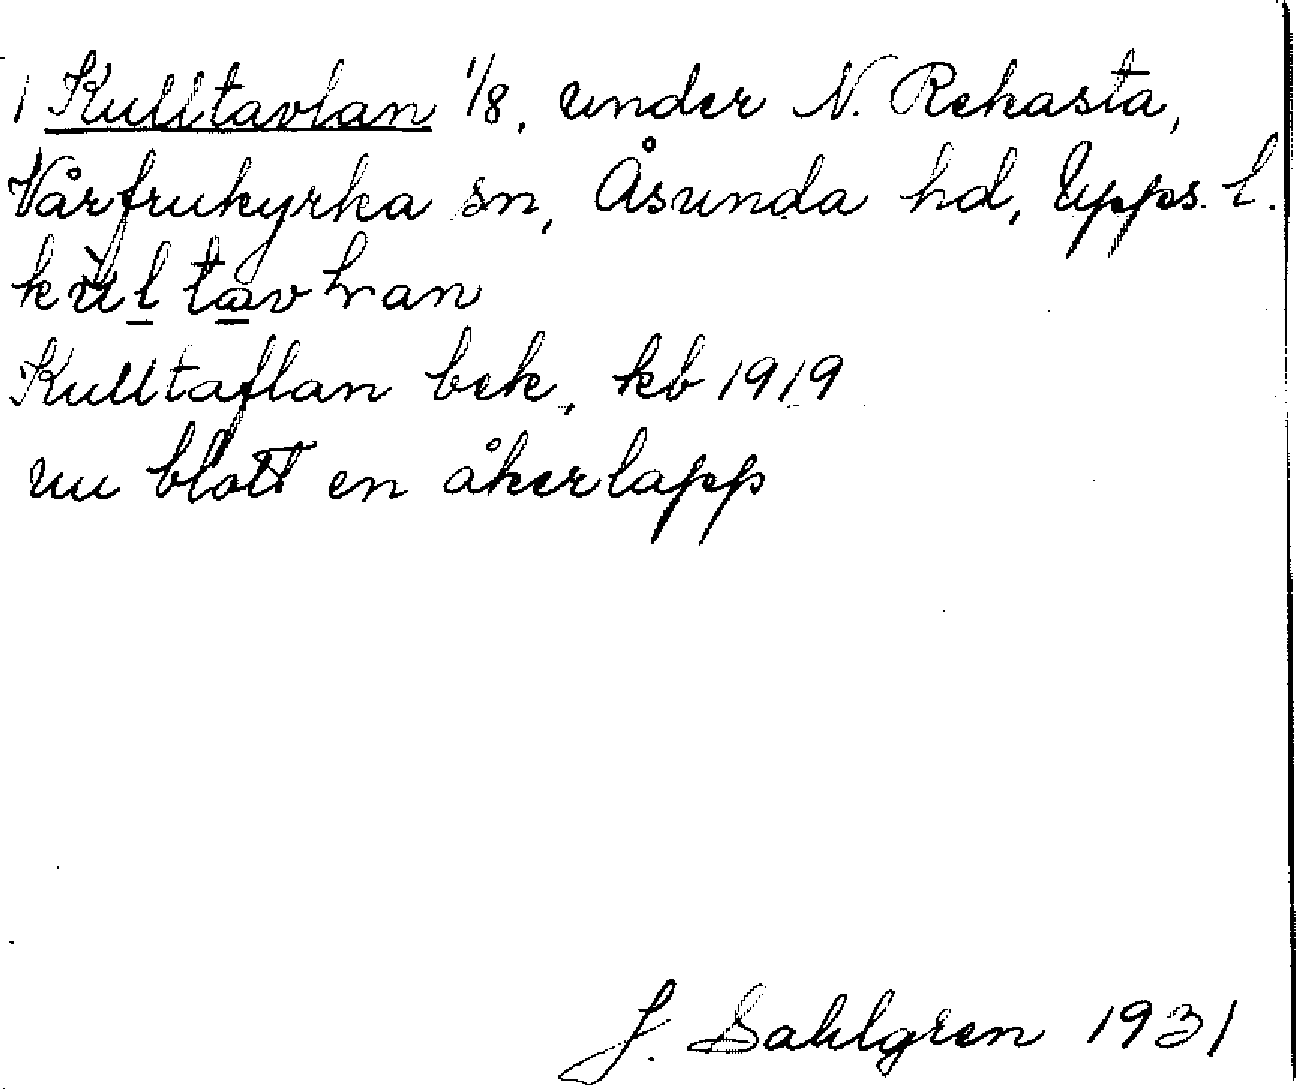 1 Kulltavlan 1/8, under N. Rekasta,
Vårfrukyrka sn, Åsunda hd, Upps. l.
kùltavlran
Kulltaflan bek, kb 1919
nu blott en åkerlapp
J. Sahlgren 1931